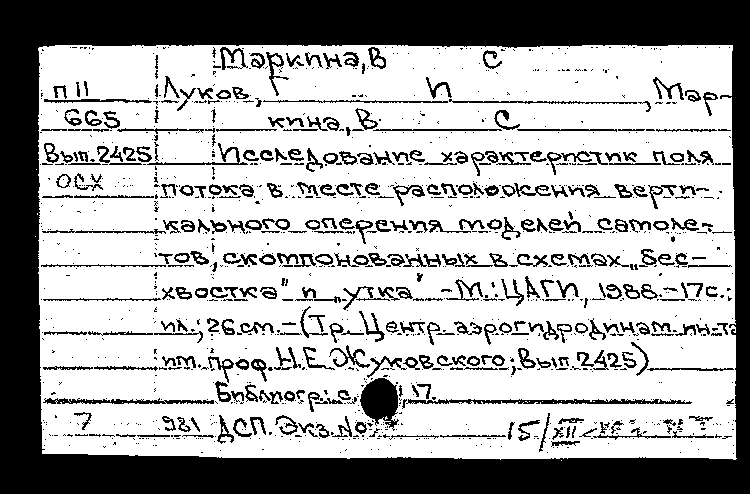 Маркина, В С
П II Луков, Г И, Мар-
665 кина, В С
Вып. 2425 Исследование характеристик поля
ОСХ потока в месте расположения верти-
кального оперения моделей самоле-
тов, скомпонованных в схемах „Бес-
хвостка" и „утка" - М.: ЦАГИ, 1988. - 17 с.:
ил.; 26 см. - (Тр. Центр. аэрогидродинам. ин-та
им. проф. Н. Е. Жуковского; Вып. 2425)
Библиогр.: с. 17.
7 981 ДСП. Экз. № 15/XII